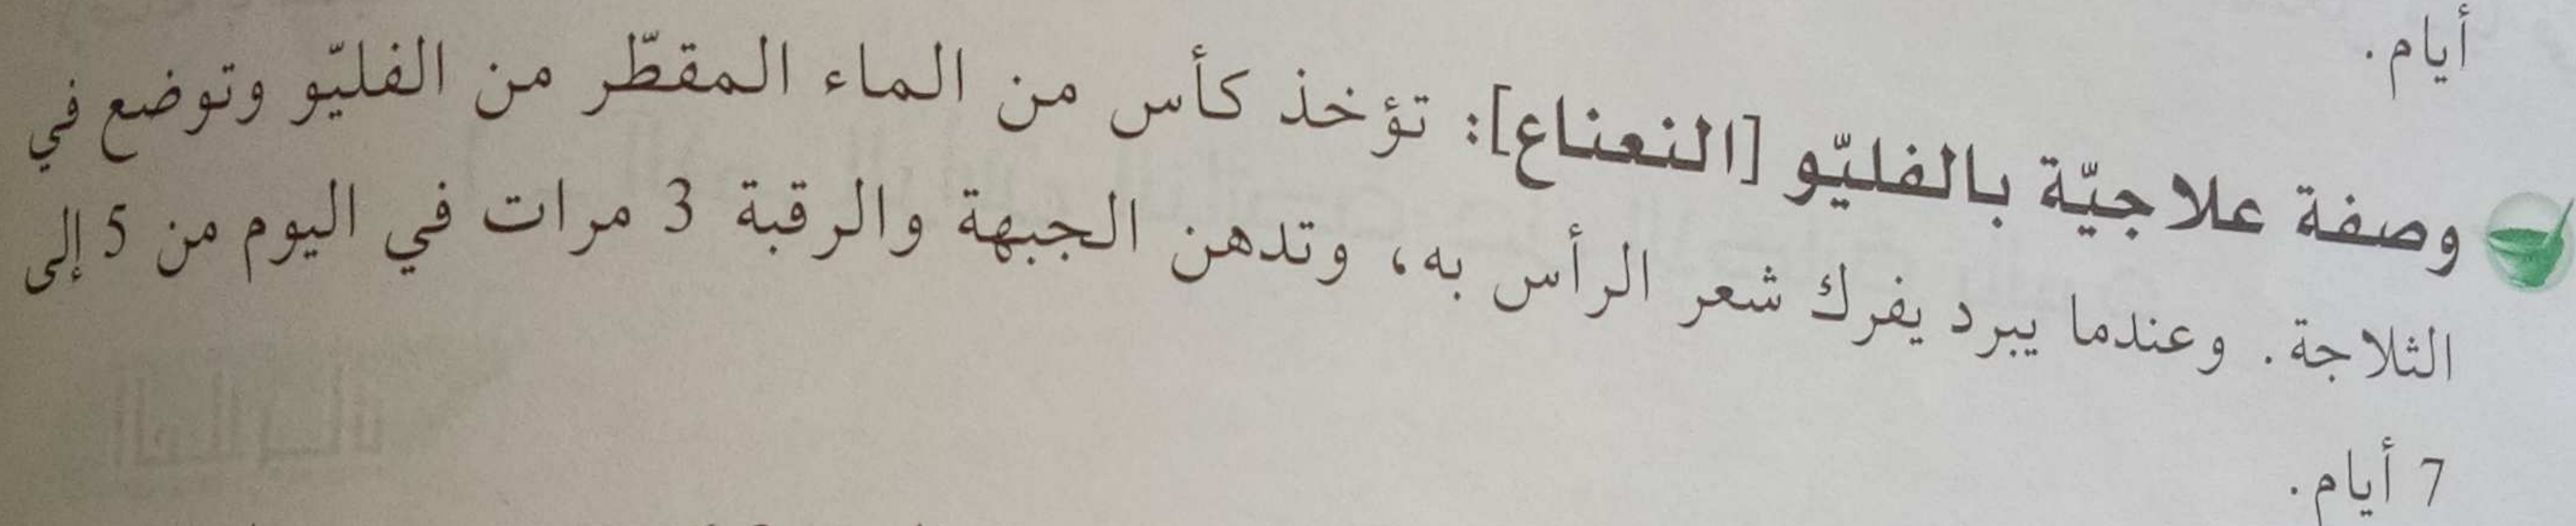 أيام.
وصفة علاجيّة بالفليّو [النعناع]: تؤخذ كأس من الماء المقطّر من الفليّو وتوضع في
الثلاجة. وعندما يبرد يفرك شعر الرأس به، وتدهن الجبهة والرقبة 3 مرات في اليوم من 5 إلى
7 أيام.